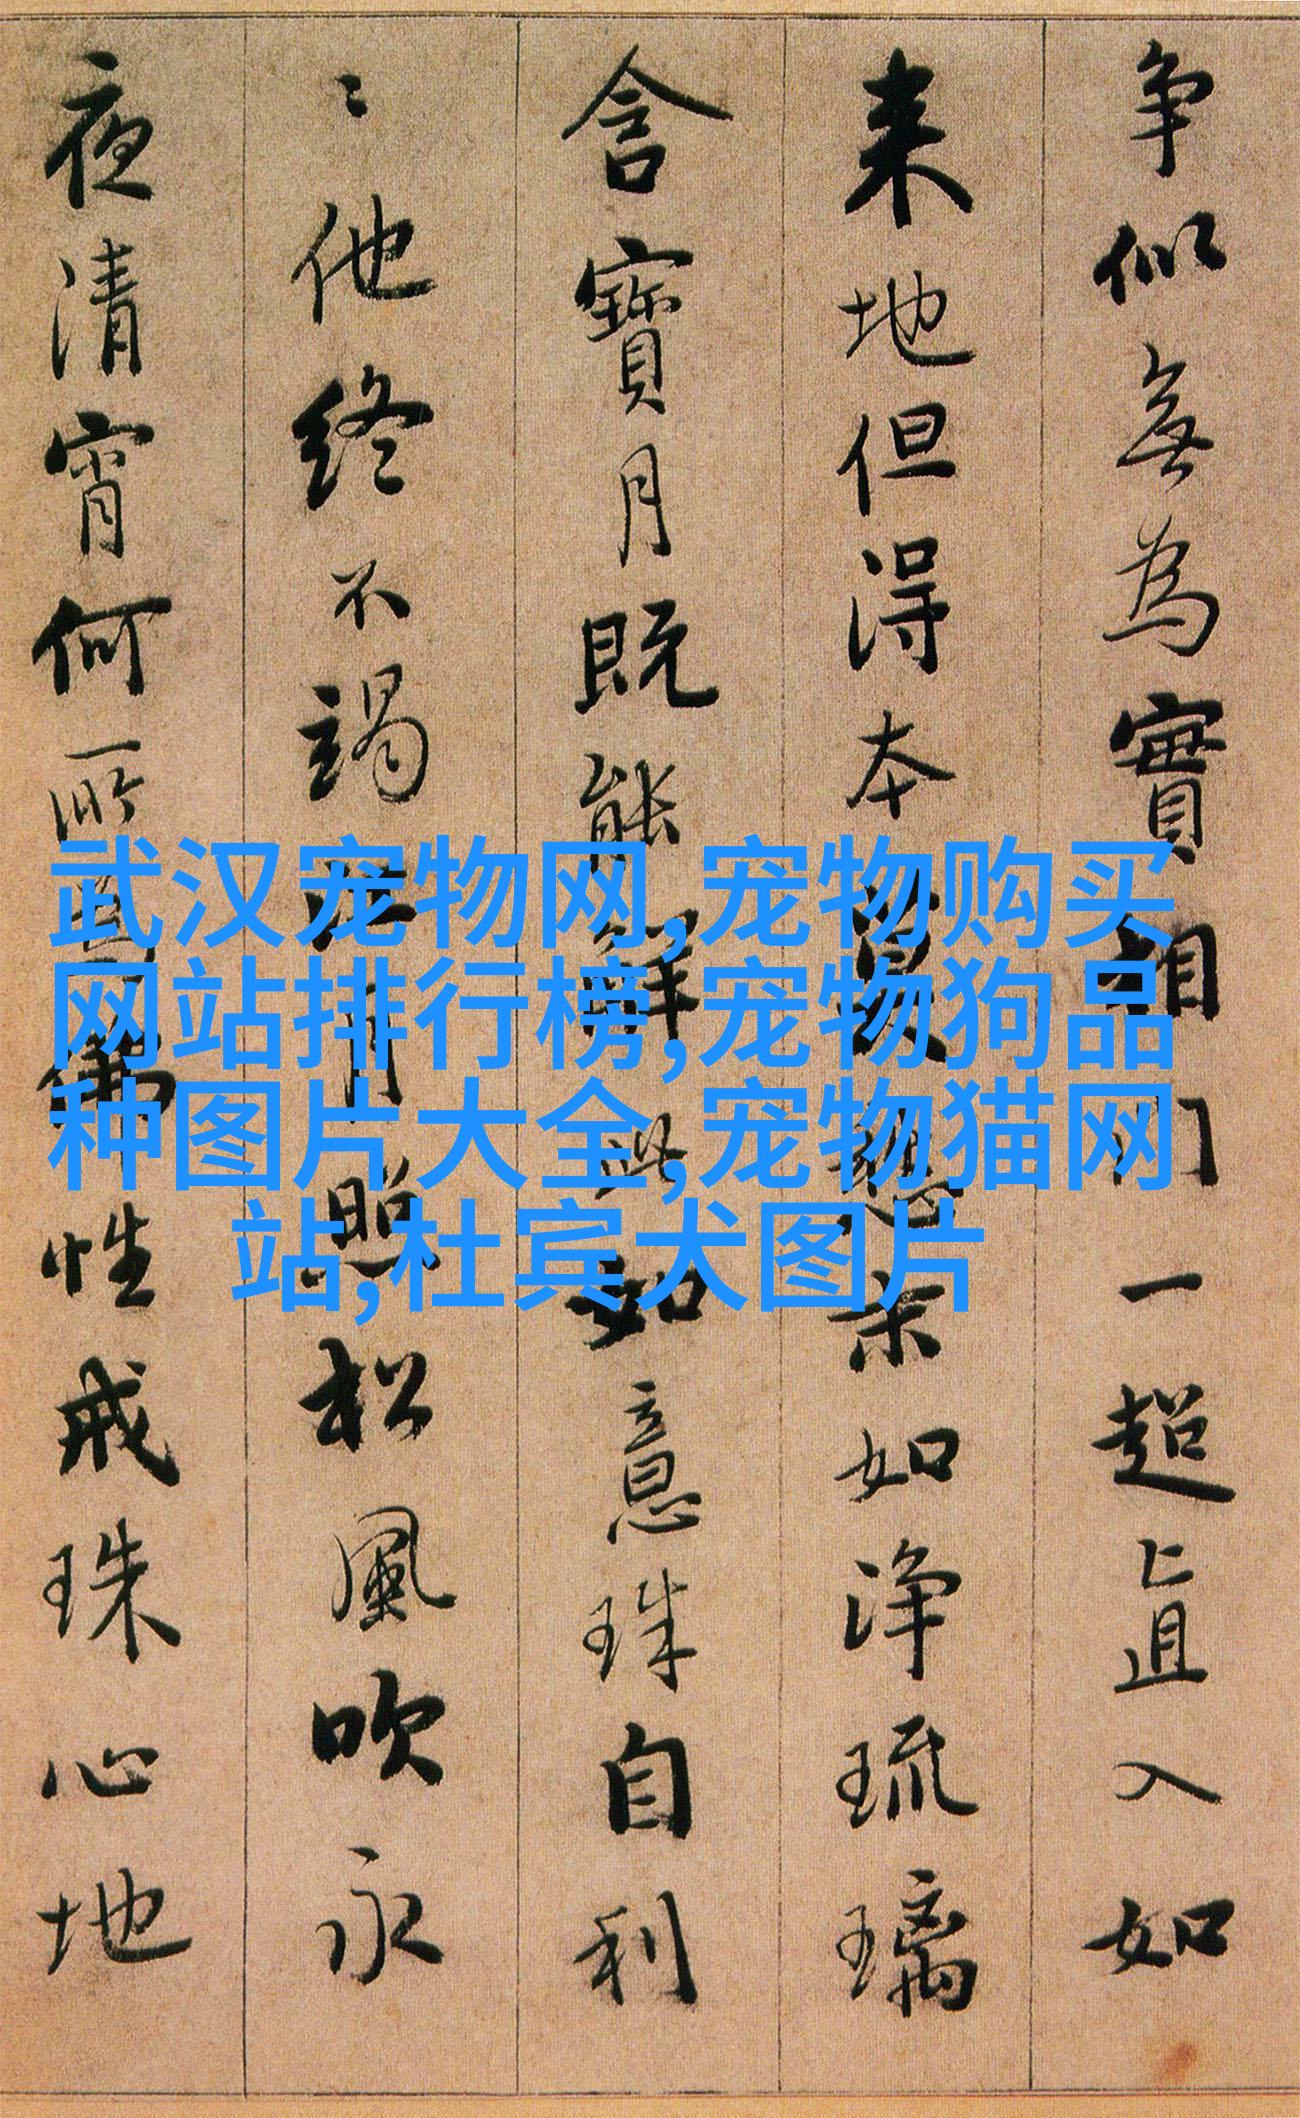 争似無為實相門一超直入如
来地但得本莫愁末如淨琉璃
含寶月既能解此如意珠自利
〻他終不竭江月照松風吹永
夜清宵何所佛性戒珠心地
武汉宠物网,宠物购买
网站排行榜,宠物狗品
种图片大全,宠物猫网
站,杜宾犬图片